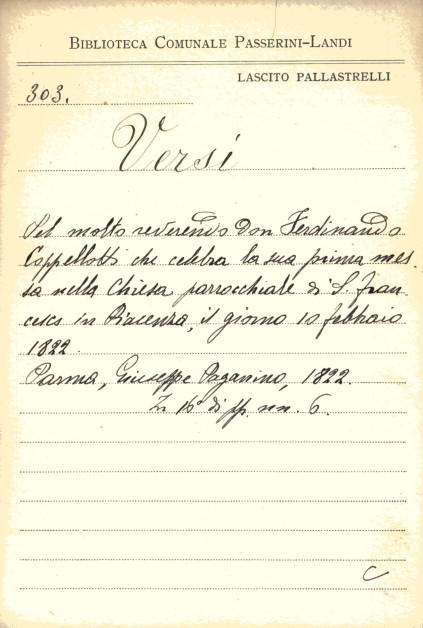 BIBLIOTECA COMUNALE PASSERINI-LANDI
LASCITO PALLASTRELLI
303.
Versi
Pel molto reverendo Don Ferdinando
Coppellotti che celebra la sua prima mes-
sa nella Chiesa parrocchiale di S. Fran-
cesco in Piacenza, il giorno 10 febbraio
1822.
Parma, Giuseppe Paganino, 1822.
In 16° di pp. nn. 6.
C